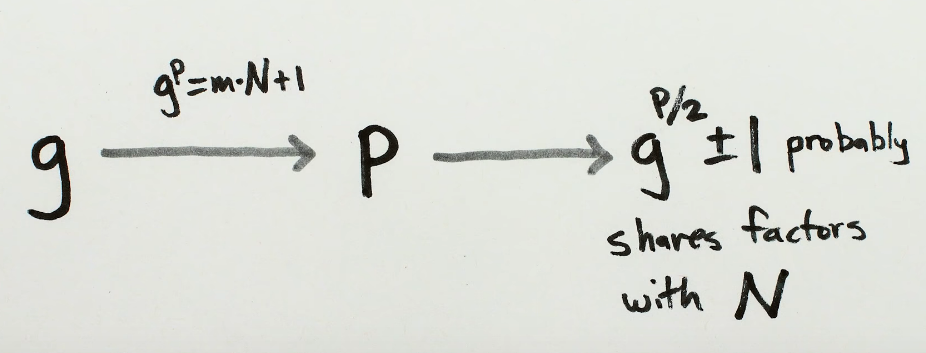 g^p=m·N+1
g → p → g^p/2 ±1 probably
shares factors
with N